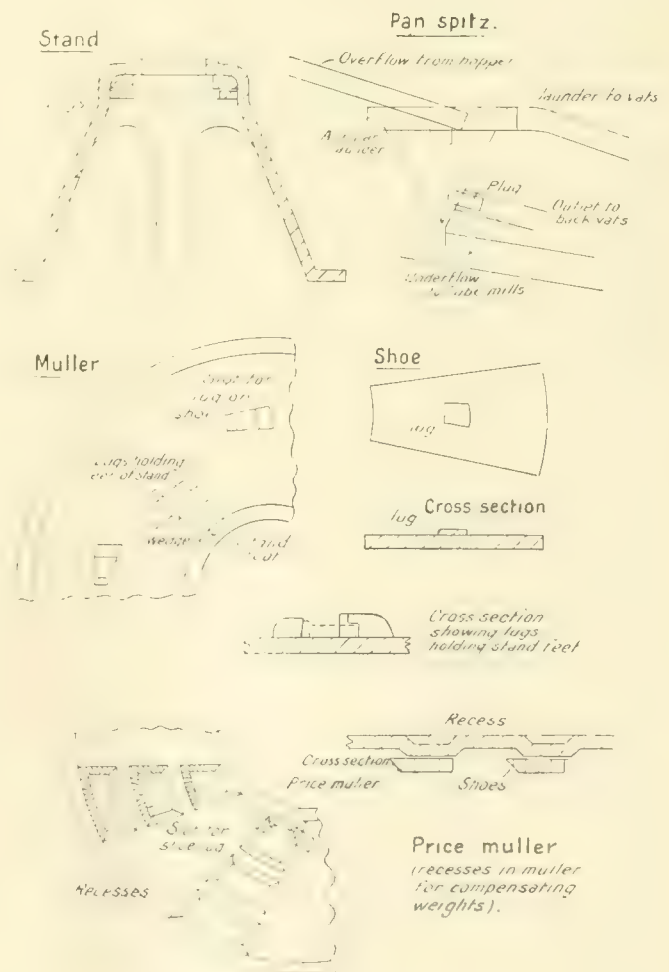 Pan spitz.
Stand
Overflow from hopper
launder to vats
Plug
Outlet to
back vats
Underflow
to tube mills
Muller
Shoe
lug on
shoe
lug
Lugs holding
feet of stand
wedge
Cross section
lug
Cross section
showing lugs
holding stand feet
Recess
Cross section
Price muller
Shoes
Recesses
Price muller
(recesses in muller
for compensating
weights).